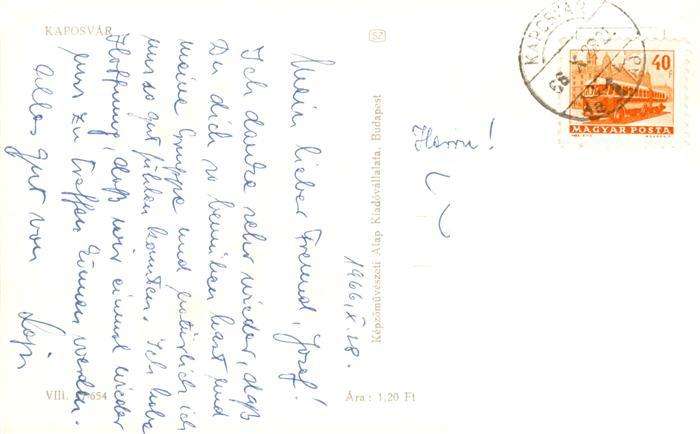 KAPOSVÁR
SZ
Mein lieber Freund, Josef!
Ich danke sehr wieder, daß
Du dich so bemühen hast und
meine Gruppe und natürlich ich
uns so gut fühlen konnten. Ich habe
Hoffnung, daß wir einmal wieder
uns zu treffen können werden.
Alles gut von
Lapi
1966. X. 28.
Képzőművészeti Alap Kiadóvállalata, Budapest
VIII.
654
Ára: 1,20 Ft
Herrn!
KAPOSVÁR
40
MAGYAR POSTA